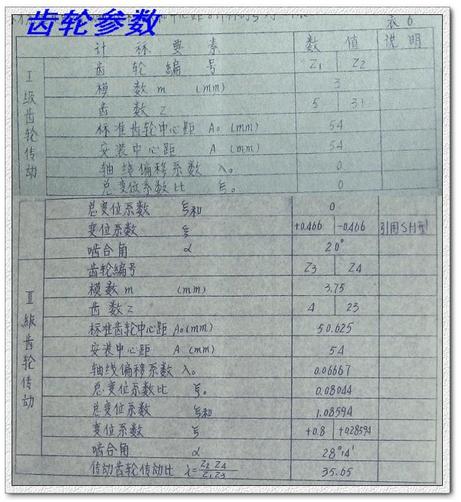 齿轮参数
表 6
计 称 要 素 数 值 说 明
I级齿轮传动
齿 轮 编 号 Z1 Z2
模 数 m (mm) 3
齿 数 Z 5 31
标准齿轮中心距 A₀ (mm) 54
安装中心距 A (mm) 54
轴线偏移系数 λ₀ 0
总变位系数比 ξ₀ 0
总变位系数 ξ和 0
变位系数 ξ +0.466 -0.466 引用SH型
啮合角 α 20°
II级齿轮传动
齿轮编号 Z3 Z4
模数 m (mm) 3.75
齿 数 Z 4 23
标准齿轮中心距 A₀(mm) 50.625
安装中心距 A (mm) 54
轴线偏移系数 λ₀ 0.06667
总变位系数比 ξ₀ 0.08044
总变位系数 ξ和 1.08594
变位系数 ξ +0.8 +0.28594
啮合角 α 28°14'
传动齿轮传动比 i=Z2 Z4/Z1 Z3 35.65